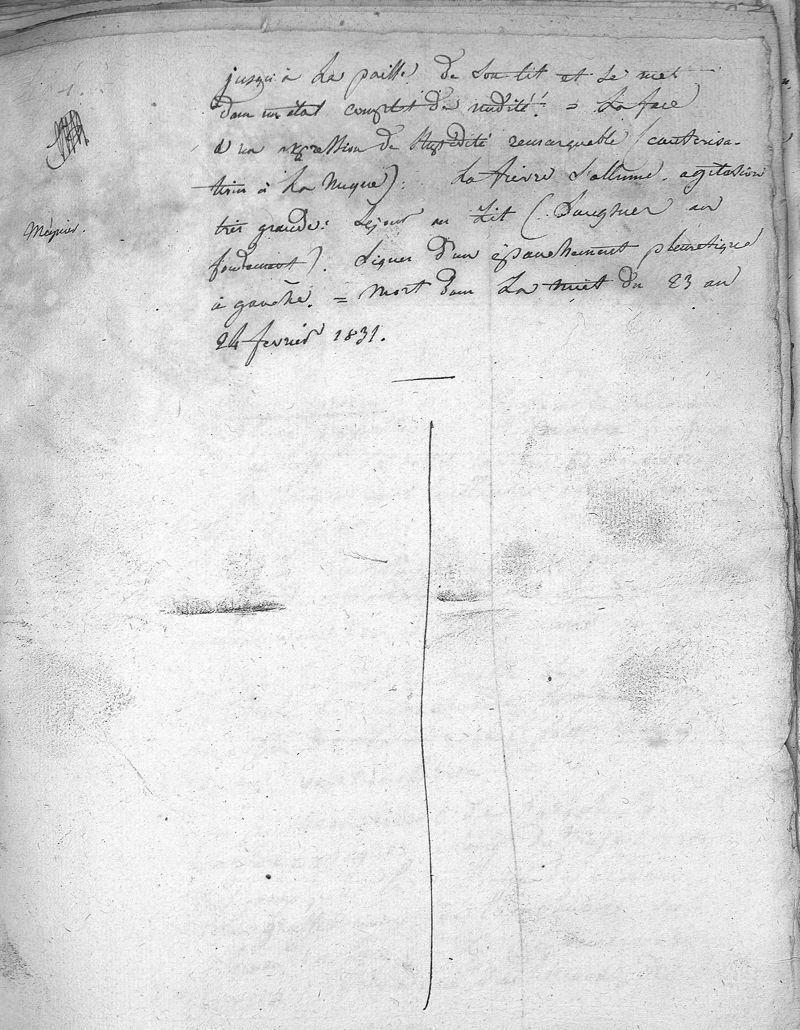 jusqu'à la paille de son lit et se met
dans un état complet de nudité! = La face
a un expression de stupidité remarquable (cauterisa-
tion à la nuque). La fièvre s'allume. agitation
Meynier.
très grande: Séjour au Lit ( au
fondement). Signes d'un épanchement pleuretique
à gauche. = Mort dans la nuit du 23 au
24 fevrier 1831.